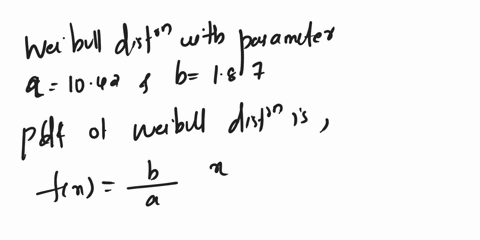 Weibull distⁿ with parameter
a = 10.42 & b = 1.87
pdf of weibull distⁿ is,
f(x) = b/a x